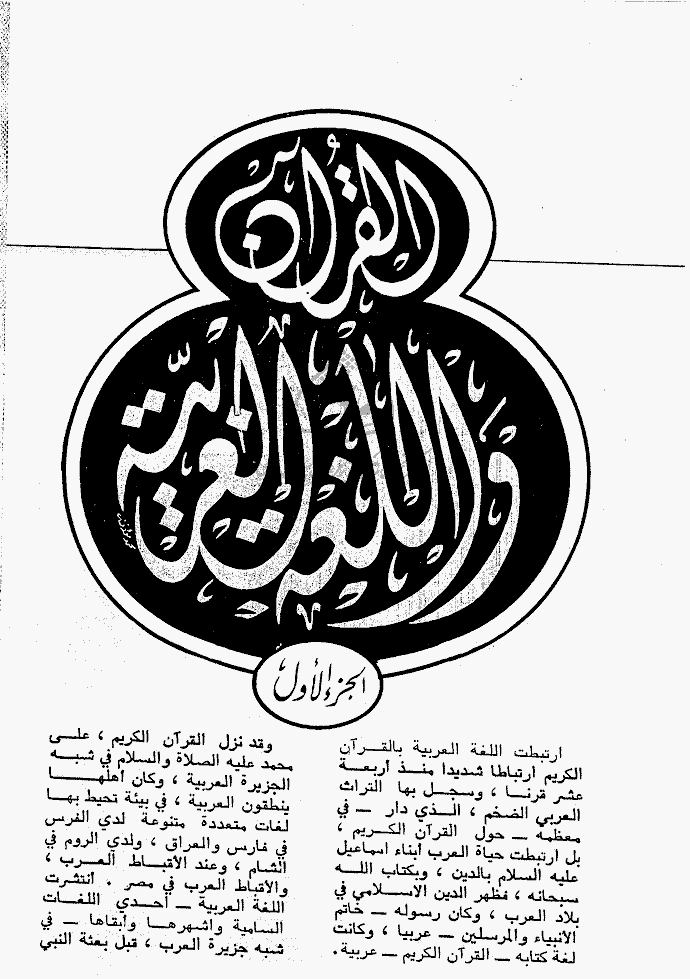 القرآن
واللغة العربية
الجزء الأول
ارتبطت اللغة العربية بالقـــرآن
الكريم ارتباطا شديدا منـــذ أربعـــة
عشر قرنـــا ، وسجـــل بها التراث
العربي الضخم ، الـــذي دار ـــ في
معظمه ـــ حول القرآن الكـــريم ،
بل ارتبطت حياة العرب أبناء اسماعيل
عليه السلام بالدين ، وبكتاب اللـــه
سبحانه ، فظهر الدين الاســـلامي في
بلاد العرب ، وكان رسوله ـــ خاتم
الانبياء والمرسلين ـــ عربيا ، وكانت
لغة كتابه ـــ القرآن الكريم ـــ عربية .
وقد نزل القرآن الكريم ، علـــى
محمد عليه الصلاة والسلام في شبـــه
الجزيرة العربية ، وكان أهلهـــا
ينطقون العربية ، في بيئة تحيط بهـــا
لغات متعددة متنوعة لدي الفرس
في فارس والعراق ، ولدي الروم في
الشام ، وعند الأقبـــاط العـــرب ،
والأقباط العرب في مصر . انتشرت
اللغة العربية ـــ أحـــدي اللغـــات
السامية واشهرهـــا وأبقاها ـــ في
شبه جزيرة العرب ، قبل بعثة النبي